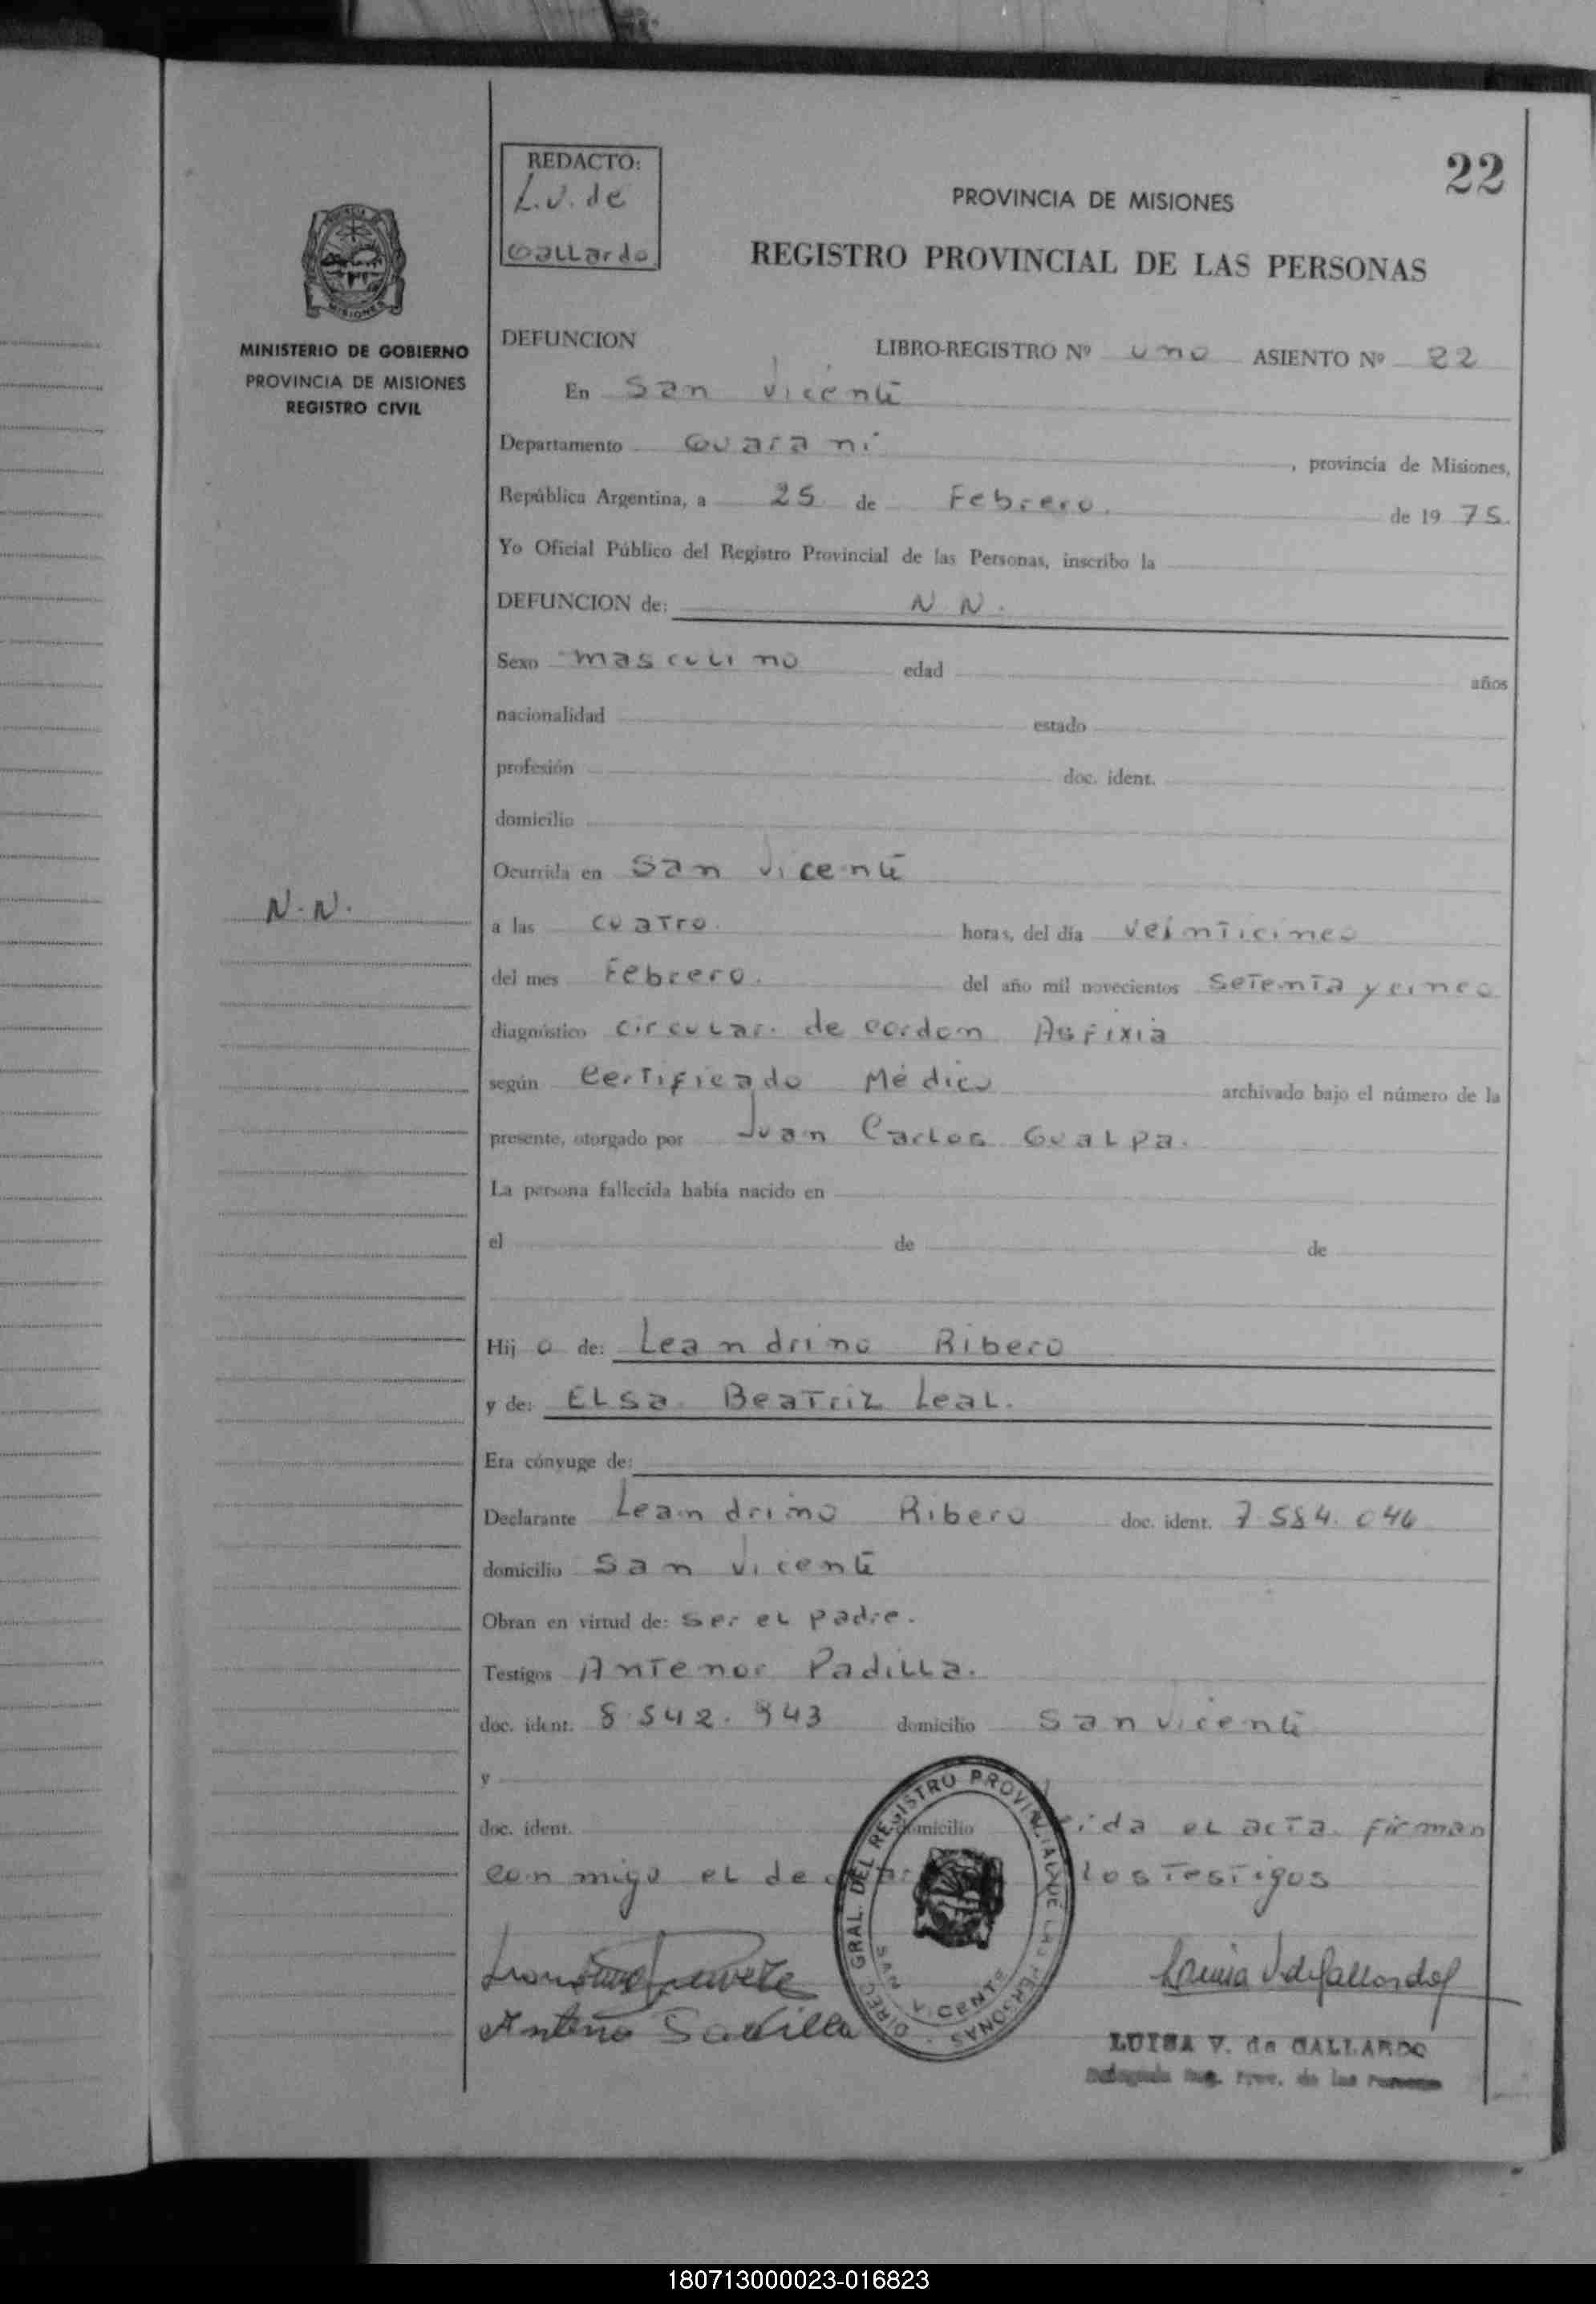 22
REDACTO:
L.V. de
Gallardo
PROVINCIA DE MISIONES
REGISTRO PROVINCIAL DE LAS PERSONAS
MISIONES
MINISTERIO DE GOBIERNO
PROVINCIA DE MISIONES
REGISTRO CIVIL
DEFUNCION LIBRO-REGISTRO Nº uno ASIENTO Nº 22
En San Vicente
Departamento Guarani , provincia de Misiones,
República Argentina, a 25 de Febrero. de 19 75.
Yo Oficial Público del Registro Provincial de las Personas, inscribo la
DEFUNCION de: N N.
Sexo masculino edad años
nacionalidad estado
profesión doc. ident.
domicilio
Ocurrida en San Vicente
N.N.
a las cuatro. horas, del día veinticinco
del mes Febrero. del año mil novecientos setenta y cinco
diagnóstico circular. de cordon Asfixia
según Certificado Médico archivado bajo el número de la
presente, otorgado por Juan Carlos Gualpa.
La persona fallecida había nacido en
el de de
Hij o de: Leandrino Ribero
y de: Elsa Beatriz Leal.
Era cónyuge de:
Declarante Leandrino Ribero doc. ident. 7 584.046
domicilio San Vicente
Obran en virtud de: ser el padre.
Testigos Antenor Padilla.
doc. ident. 8.542.943 domicilio San Vicente
y
doc. ident. domicilio el acta firman
conmigo el los testigos
DIREC. GRAL. DEL REGISTRO PROVINCIAL DE LAS PERSONAS
SAN VICENTE
LUISA V. de GALLARDO
Delegada Reg. Prov. de las Personas
180713000023-016823